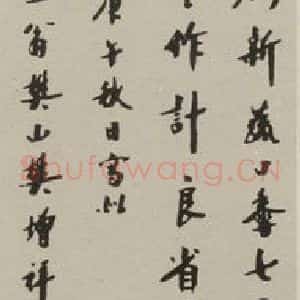 新七
作計良省
庚午秋日寫以
翁樊山樊增祥
Shufawang.CN